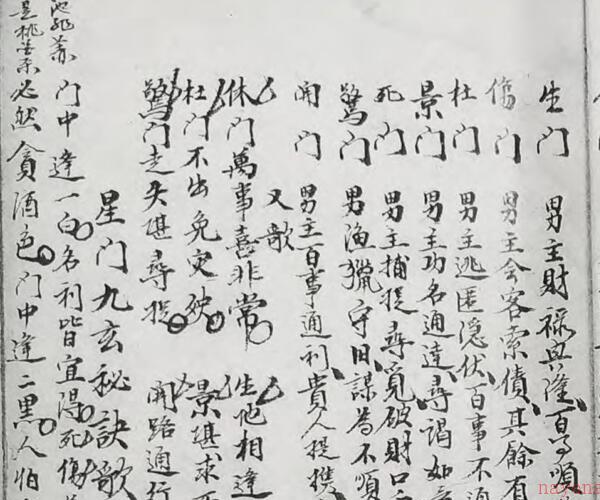 生门 男主財禄興隆百事順
傷门 男主会客索債其餘有
杜门 男主逃匿隐伏百事不
景门 男主功名通達尋谒如
死门 男主捕捉尋覓破財口
驚门 男漁獵守旧謀為不順
開门 男主百事通利貴人提携
又歌
休门萬事喜非常 生他相逢
杜门不出免灾殃 景堪求
驚门走失堪尋捉 開路通行
星门九玄秘訣歌
门中逢一白名利皆宜得死傷
必然貪酒色门中逢二黑人怕
nayona